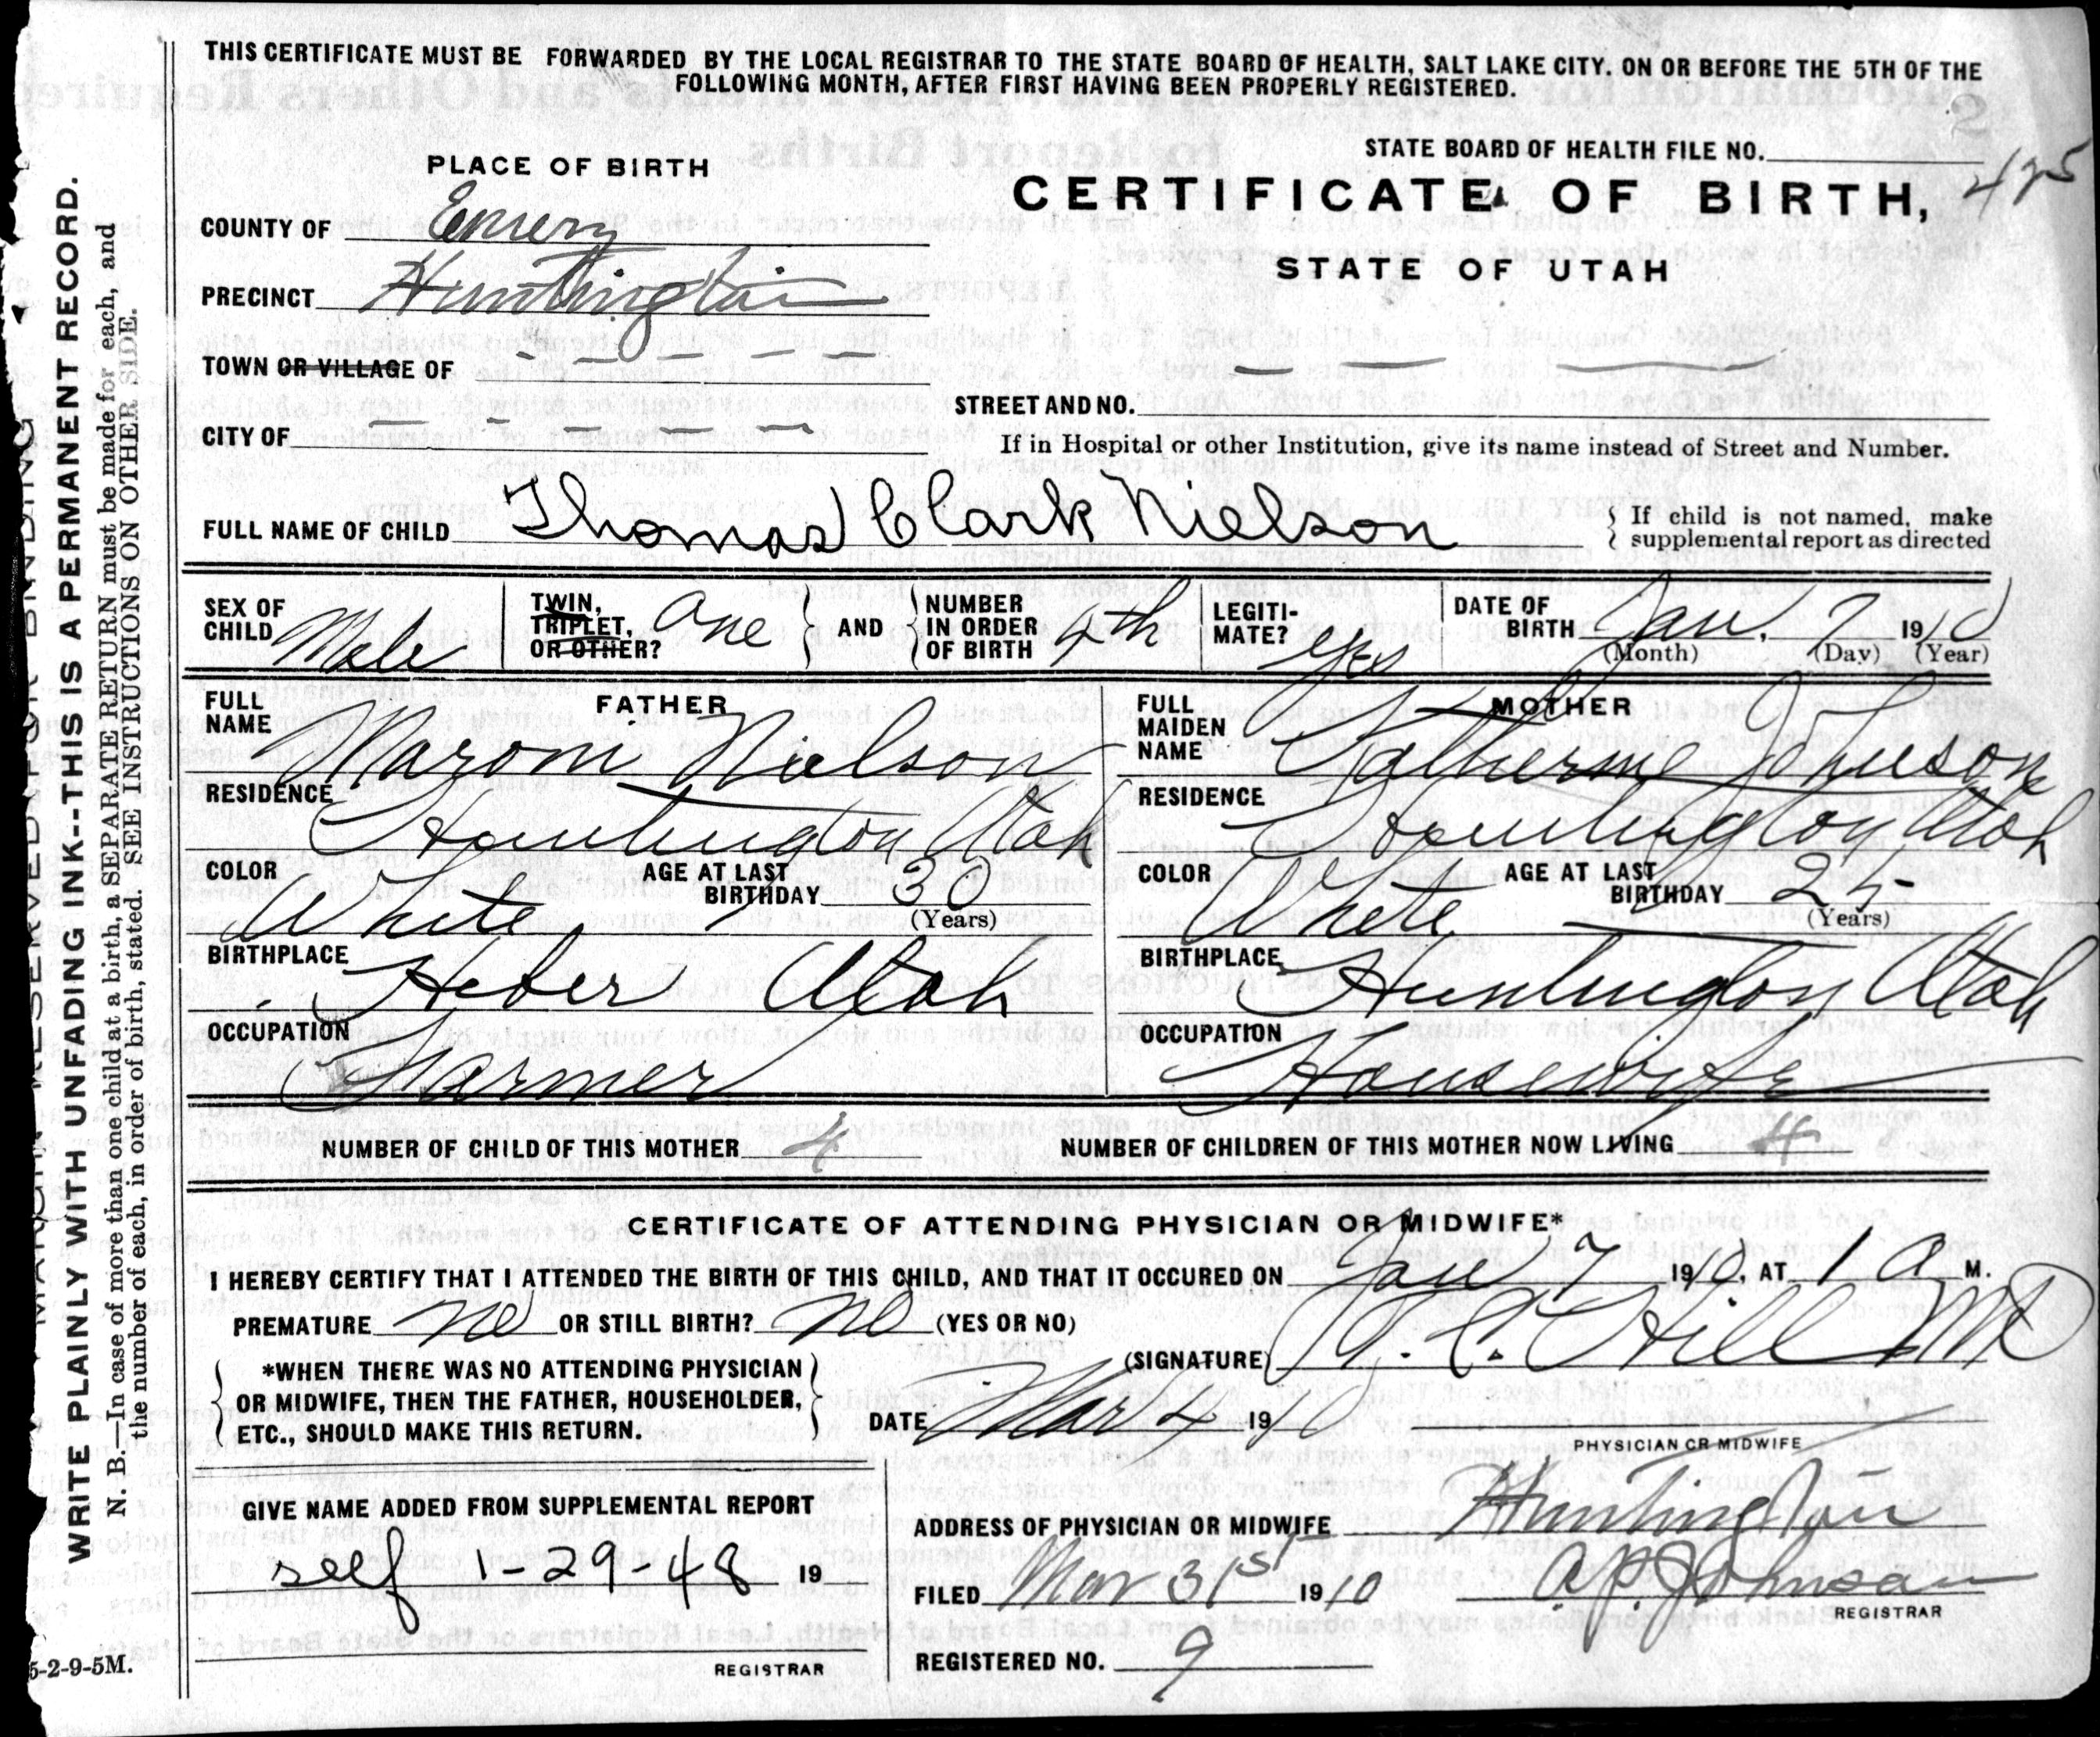 THIS CERTIFICATE MUST BE FORWARDED BY THE LOCAL REGISTRAR TO THE STATE BOARD OF HEALTH, SALT LAKE CITY. ON OR BEFORE THE 5TH OF THE
FOLLOWING MONTH, AFTER FIRST HAVING BEEN PROPERLY REGISTERED.
STATE BOARD OF HEALTH FILE NO.
CERTIFICATE OF BIRTH, 425
STATE OF UTAH
PLACE OF BIRTH
COUNTY OF Emery
PRECINCT Huntington
TOWN OR VILLAGE OF - - - - -
STREET AND NO. — —
CITY OF - - - - -
If in Hospital or other Institution, give its name instead of Street and Number.
FULL NAME OF CHILD Thomas Clark Nielson
{ If child is not named, make
supplemental report as directed
SEX OF CHILD Male
TWIN, TRIPLET, OR OTHER? One } AND { NUMBER IN ORDER OF BIRTH 4th
LEGITIMATE? yes
DATE OF BIRTH Jan. 7 1910
(Month) (Day) (Year)
FATHER
FULL NAME Maroni Nielson
RESIDENCE Huntington Utah
COLOR White AGE AT LAST BIRTHDAY 30
(Years)
BIRTHPLACE Heber Utah
OCCUPATION Farmer
MOTHER
FULL MAIDEN NAME Catherine Johnson
RESIDENCE Huntington Utah
COLOR White AGE AT LAST BIRTHDAY 25
(Years)
BIRTHPLACE Huntington Utah
OCCUPATION Housewife
NUMBER OF CHILD OF THIS MOTHER 4 NUMBER OF CHILDREN OF THIS MOTHER NOW LIVING 4
CERTIFICATE OF ATTENDING PHYSICIAN OR MIDWIFE*
I HEREBY CERTIFY THAT I ATTENDED THE BIRTH OF THIS CHILD, AND THAT IT OCCURED ON Jan 7 1910, AT 1 a M.
PREMATURE no OR STILL BIRTH? no (YES OR NO)
{ *WHEN THERE WAS NO ATTENDING PHYSICIAN
OR MIDWIFE, THEN THE FATHER, HOUSEHOLDER,
ETC., SHOULD MAKE THIS RETURN. }
(SIGNATURE) C. Hill MD
DATE Mar 4 1910
PHYSICIAN OR MIDWIFE
GIVE NAME ADDED FROM SUPPLEMENTAL REPORT
self 1-29-48 19
REGISTRAR
ADDRESS OF PHYSICIAN OR MIDWIFE Huntington
FILED Mar 31st 1910 Johnson
REGISTRAR
REGISTERED NO. 9
MARGIN RESERVED FOR BINDING
WRITE PLAINLY WITH UNFADING INK--THIS IS A PERMANENT RECORD.
N. B.—In case of more than one child at a birth, a SEPARATE RETURN must be made for each, and
the number of each, in order of birth, stated. SEE INSTRUCTIONS ON OTHER SIDE.
5-2-9-5M.